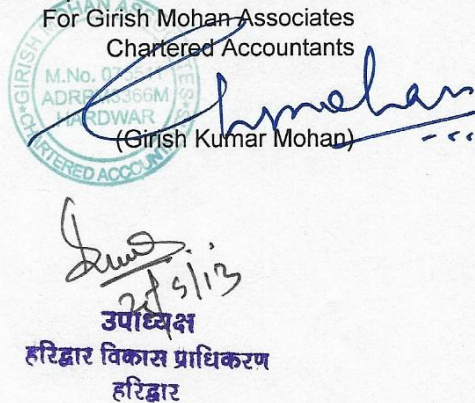 For Girish Mohan Associates
Chartered Accountants
GIRISH MOHAN ASSOCIATES
M.No.
HARDWAR
CHARTERED ACCOUNTANTS
(Girish Kumar Mohan)
उपाध्यक्ष
हरिद्वार विकास प्राधिकरण
हरिद्वार